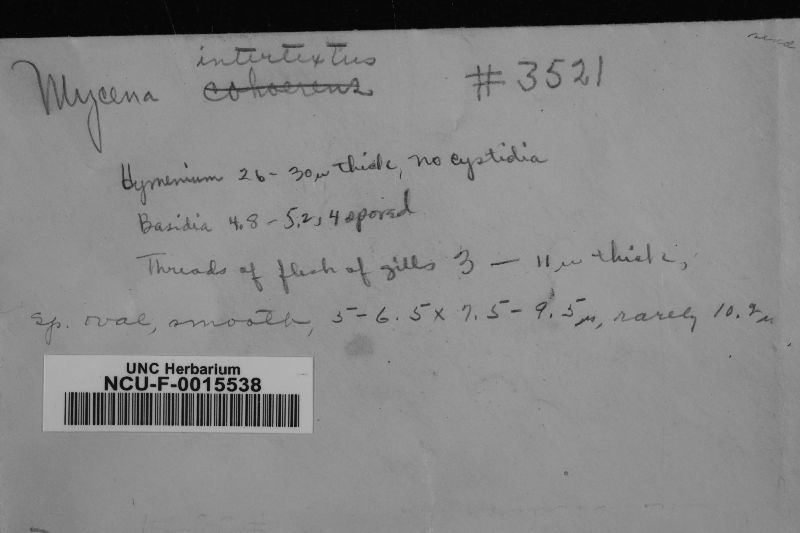 intertextus
Mycena cohaerens #3521
Hymenium 26-30µ thick, no cystidia
Basidia 4.8-5.2, 4 spored
Threads of flesh of gills 3 — 11µ thick,
Sp. oval, smooth, 5-6.5 x 7.5-9.5µ, rarely 10.2µ
UNC Herbarium
NCU-F-0015538